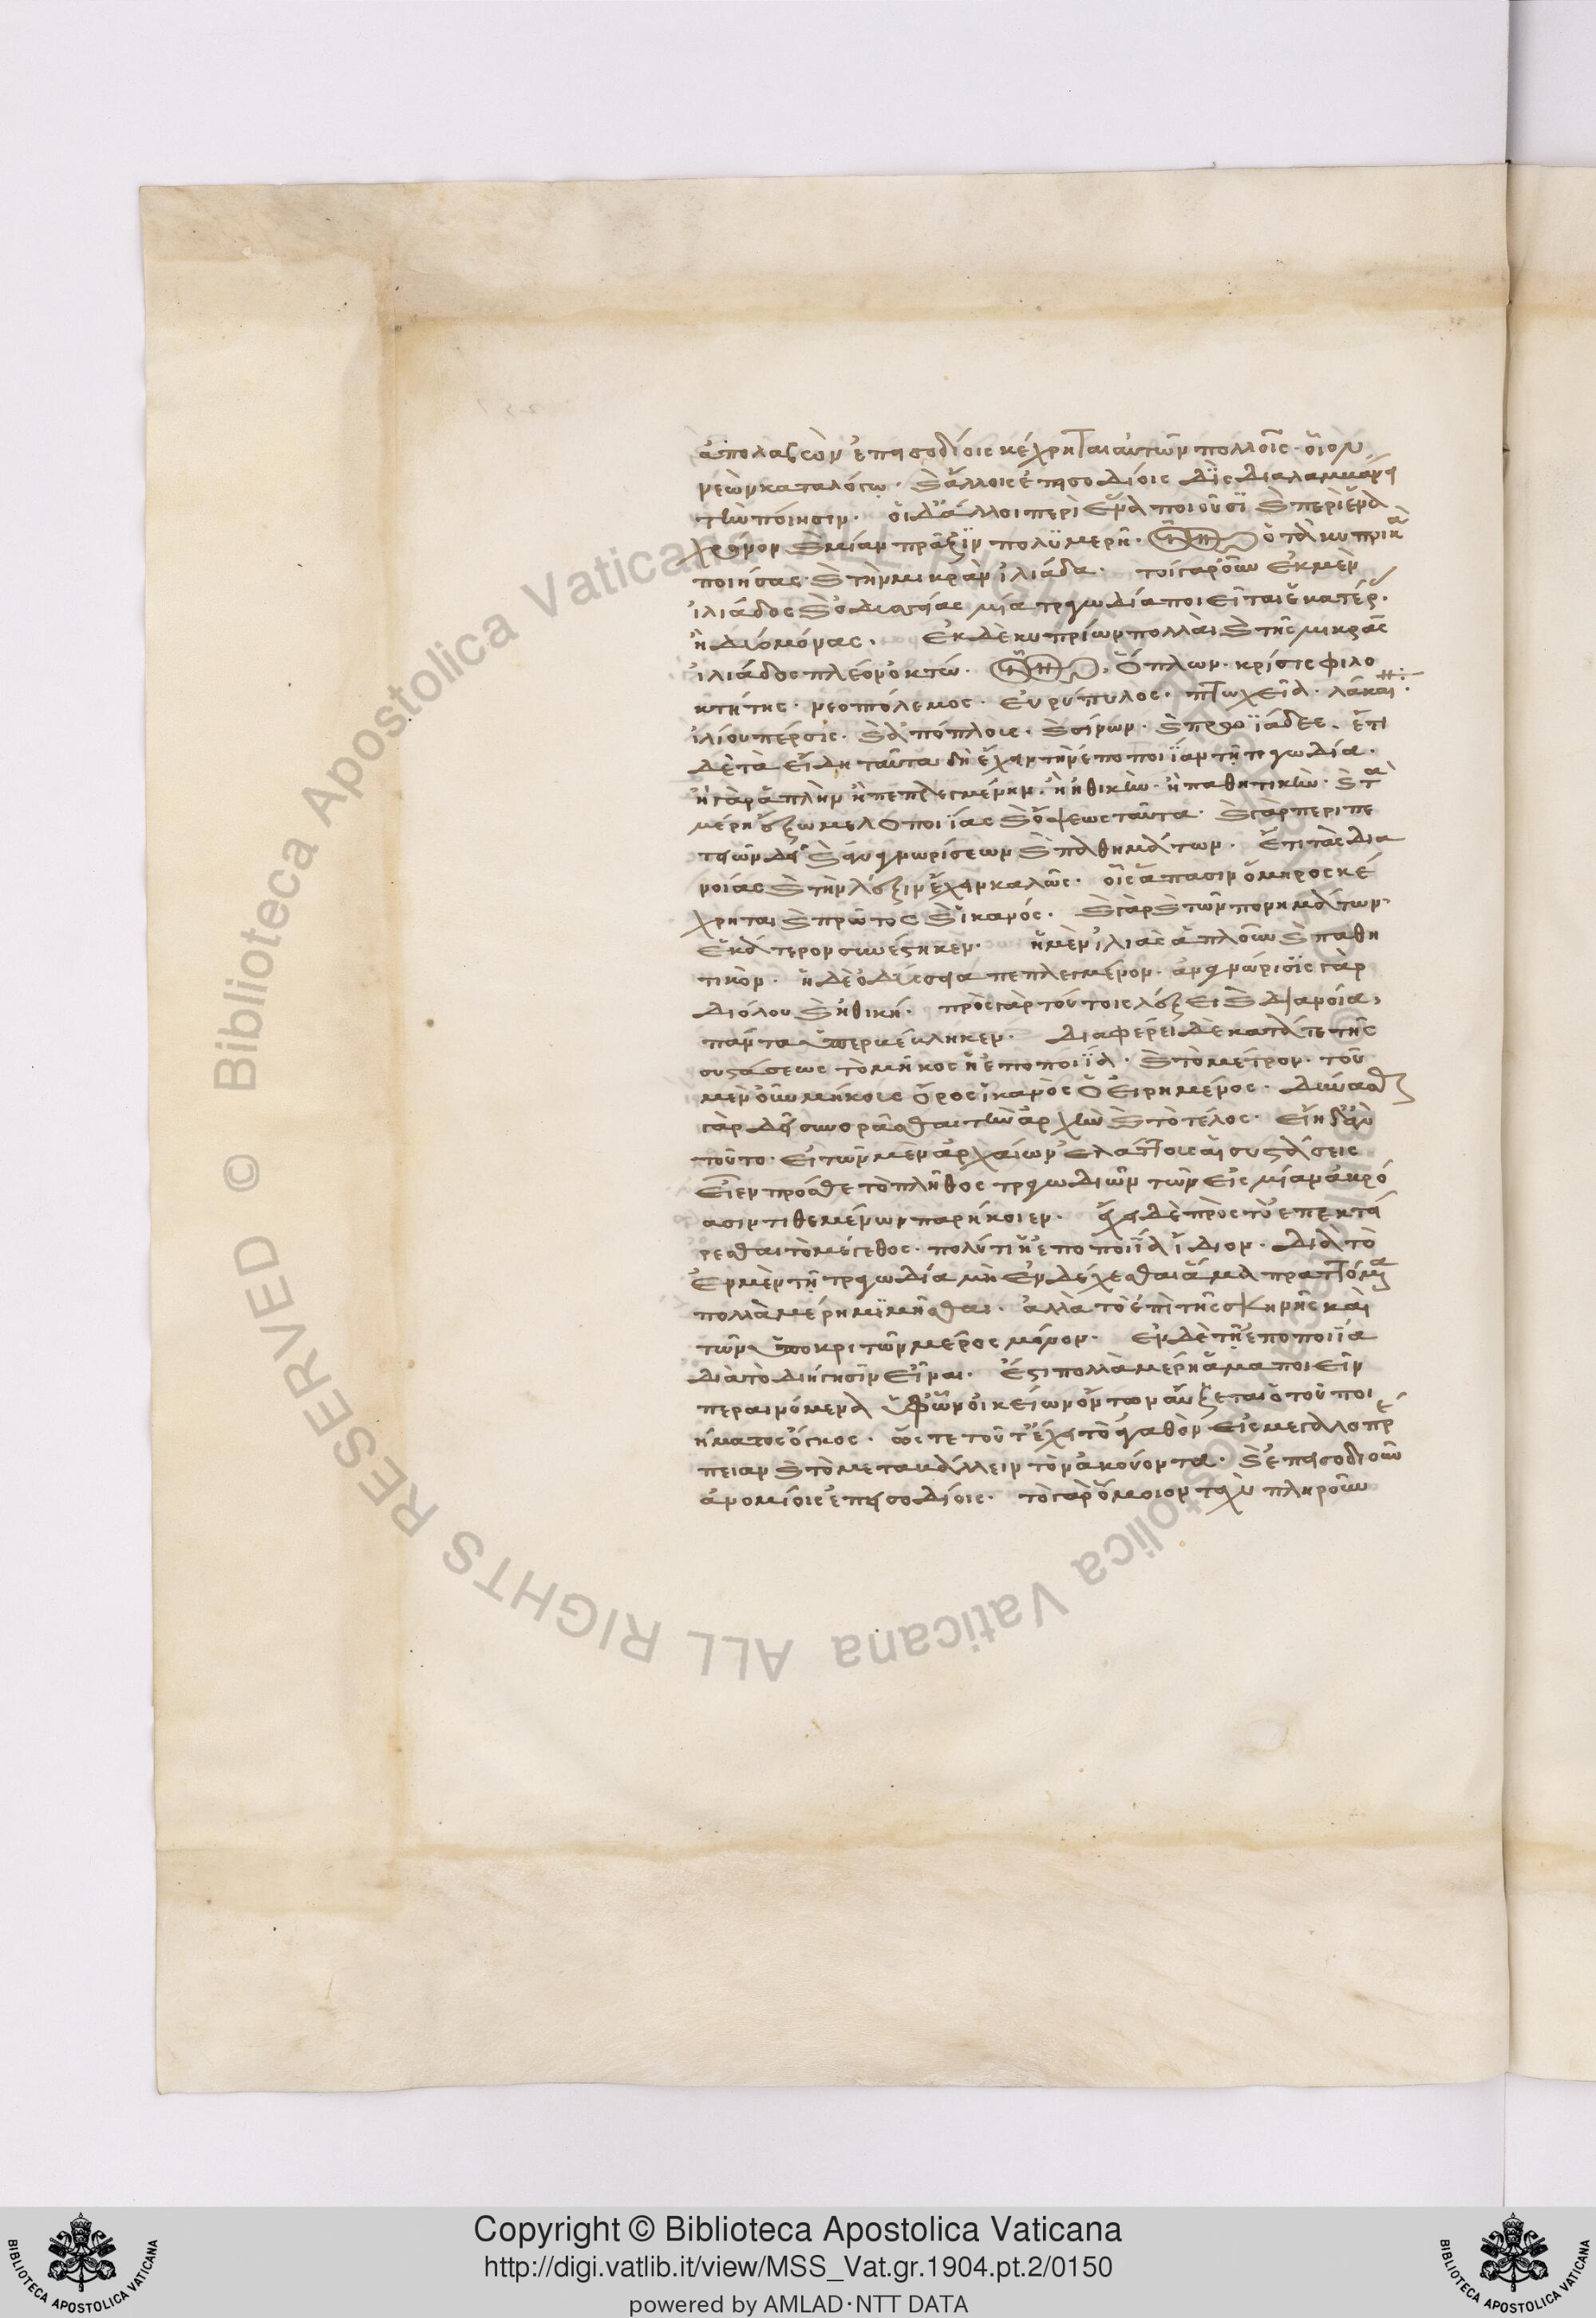 ἀπολαβὼν ἐπεισοδίοις κέχρηται αὐτῶν πολλοῖς· οἷον
νεῶν καταλόγῳ· καὶ ἄλλοις ἐπεισοδίοις δὶς διαλαμβάνει
τὴν ποίησιν· οἱ δ' ἄλλοι περὶ ἕνα ποιοῦσι καὶ περὶ ἕνα
χρόνον καὶ μίαν πρᾶξιν πολυμερῆ· ὁ τὰ κυπρικὰ
ποιήσας· καὶ τὴν μικρὰν ἰλιάδα· τοιγαροῦν ἐκ μὲν
ἰλιάδος καὶ ὀδυσσείας μία τραγωδία ποιεῖται ἑκατέρας·
ἢ δύο μόνας· ἐκ δὲ κυπρίων πολλαὶ καὶ τῆς μικρᾶς
ἰλιάδος πλέον ὀκτώ· ὅπλων κρίσις φιλο
κτήτης· νεοπόλεμος· εὐρύπυλος· πτωχεία· λάκαιναι·
ἰλίου πέρσις· καὶ ἀπόπλους· καὶ σίνων· καὶ τρωϊάδες· ἔτι
δὲ τὰ εἴδη ταῦτα δὴ ἔχειν τὴν ἐποποιΐαν τῇ τραγωδία·
ἢ γὰρ ἁπλῆν ἢ πεπλεγμένην· ἢ ἠθικὴν· ἢ παθητικὴν· καὶ τὰ
μέρη ἔξω μελοποιΐας καὶ ὄψεως ταῦτα· καὶ γὰρ περιπε
τειῶν δεῖ καὶ ἀναγνωρίσεων καὶ παθημάτων· ἔτι τὰς δια
νοίας καὶ τὴν λέξιν ἔχειν καλῶς· οἷς ἅπασιν ὅμηρος κέ
χρηται καὶ πρῶτος καὶ ἱκανός· καὶ γὰρ καὶ τῶν ποιημάτων
ἑκάτερον συνέστηκεν· ἡ μὲν ἰλιὰς ἁπλοῦν καὶ παθη
τικόν· ἡ δὲ ὀδύσσεια πεπλεγμένον· ἀναγνώρισις γὰρ
διόλου καὶ ἠθική· πρὸς γὰρ τούτοις λέξει καὶ διανοία
πάντα ὑπερβέβληκεν· διαφέρει δὲ κατά τε τῆς
συστάσεως τὸ μῆκος ἡ ἐποποιΐα· καὶ τὸ μέτρον· τοῦ
μὲν οὖν μήκους ὅρος ἱκανὸς ὁ εἰρημένος· δύνασθαι
γὰρ δεῖ συνορᾶσθαι τὴν ἀρχὴν καὶ τὸ τέλος· εἴη δ' ἂν
τοῦτο· εἰ τῶν μὲν ἀρχαίων ἐλάττους αἱ συστάσεις
εἶεν πρόσθε τὸ πλῆθος τραγωδιῶν τῶν εἰς μίαν ἀκρό
ασιν τιθεμένων παρήκοιεν· ἔχει δὲ πρὸς τὸ ἐπεκτεί
νεσθαι τὸ μέγεθος· πολύ τι ἡ ἐποποιΐα ἴδιον· διὰ τὸ
ἐν μὲν τῇ τραγωδία μὴ ἐνδέχεσθαι ἅμα πραττόμενα
πολλὰ μέρη μιμῆσθαι· ἀλλὰ τὸ ἐπὶ τῆς σκηνῆς καὶ
τῶν ὑποκριτῶν μέρος μόνον· ἐν δὲ τῇ ἐποποιΐα
διὰ τὸ διήγησιν εἶναι· ἔστι πολλὰ μέρη ἅμα ποιεῖν
περαινόμενα ὑφ' ὧν οἰκείων ὄντων αὔξεται ὁ τοῦ ποι
ήματος ὄγκος· ὥστε τοῦτ' ἔχει τὸ ἀγαθὸν εἰς μεγαλοπρέ
πειαν καὶ τὸ μεταβάλλειν τὸν ἀκούοντα· καὶ ἐπεισοδιοῦν
ἀνομίοις ἐπεισοδίοις· τὸ γὰρ ὅμοιον ταχὺ πληροῦν
Copyright © Biblioteca Apostolica Vaticana
http://digi.vatlib.it/view/MSS_Vat.gr.1904.pt.2/0150
powered by AMLAD·NTT DATA